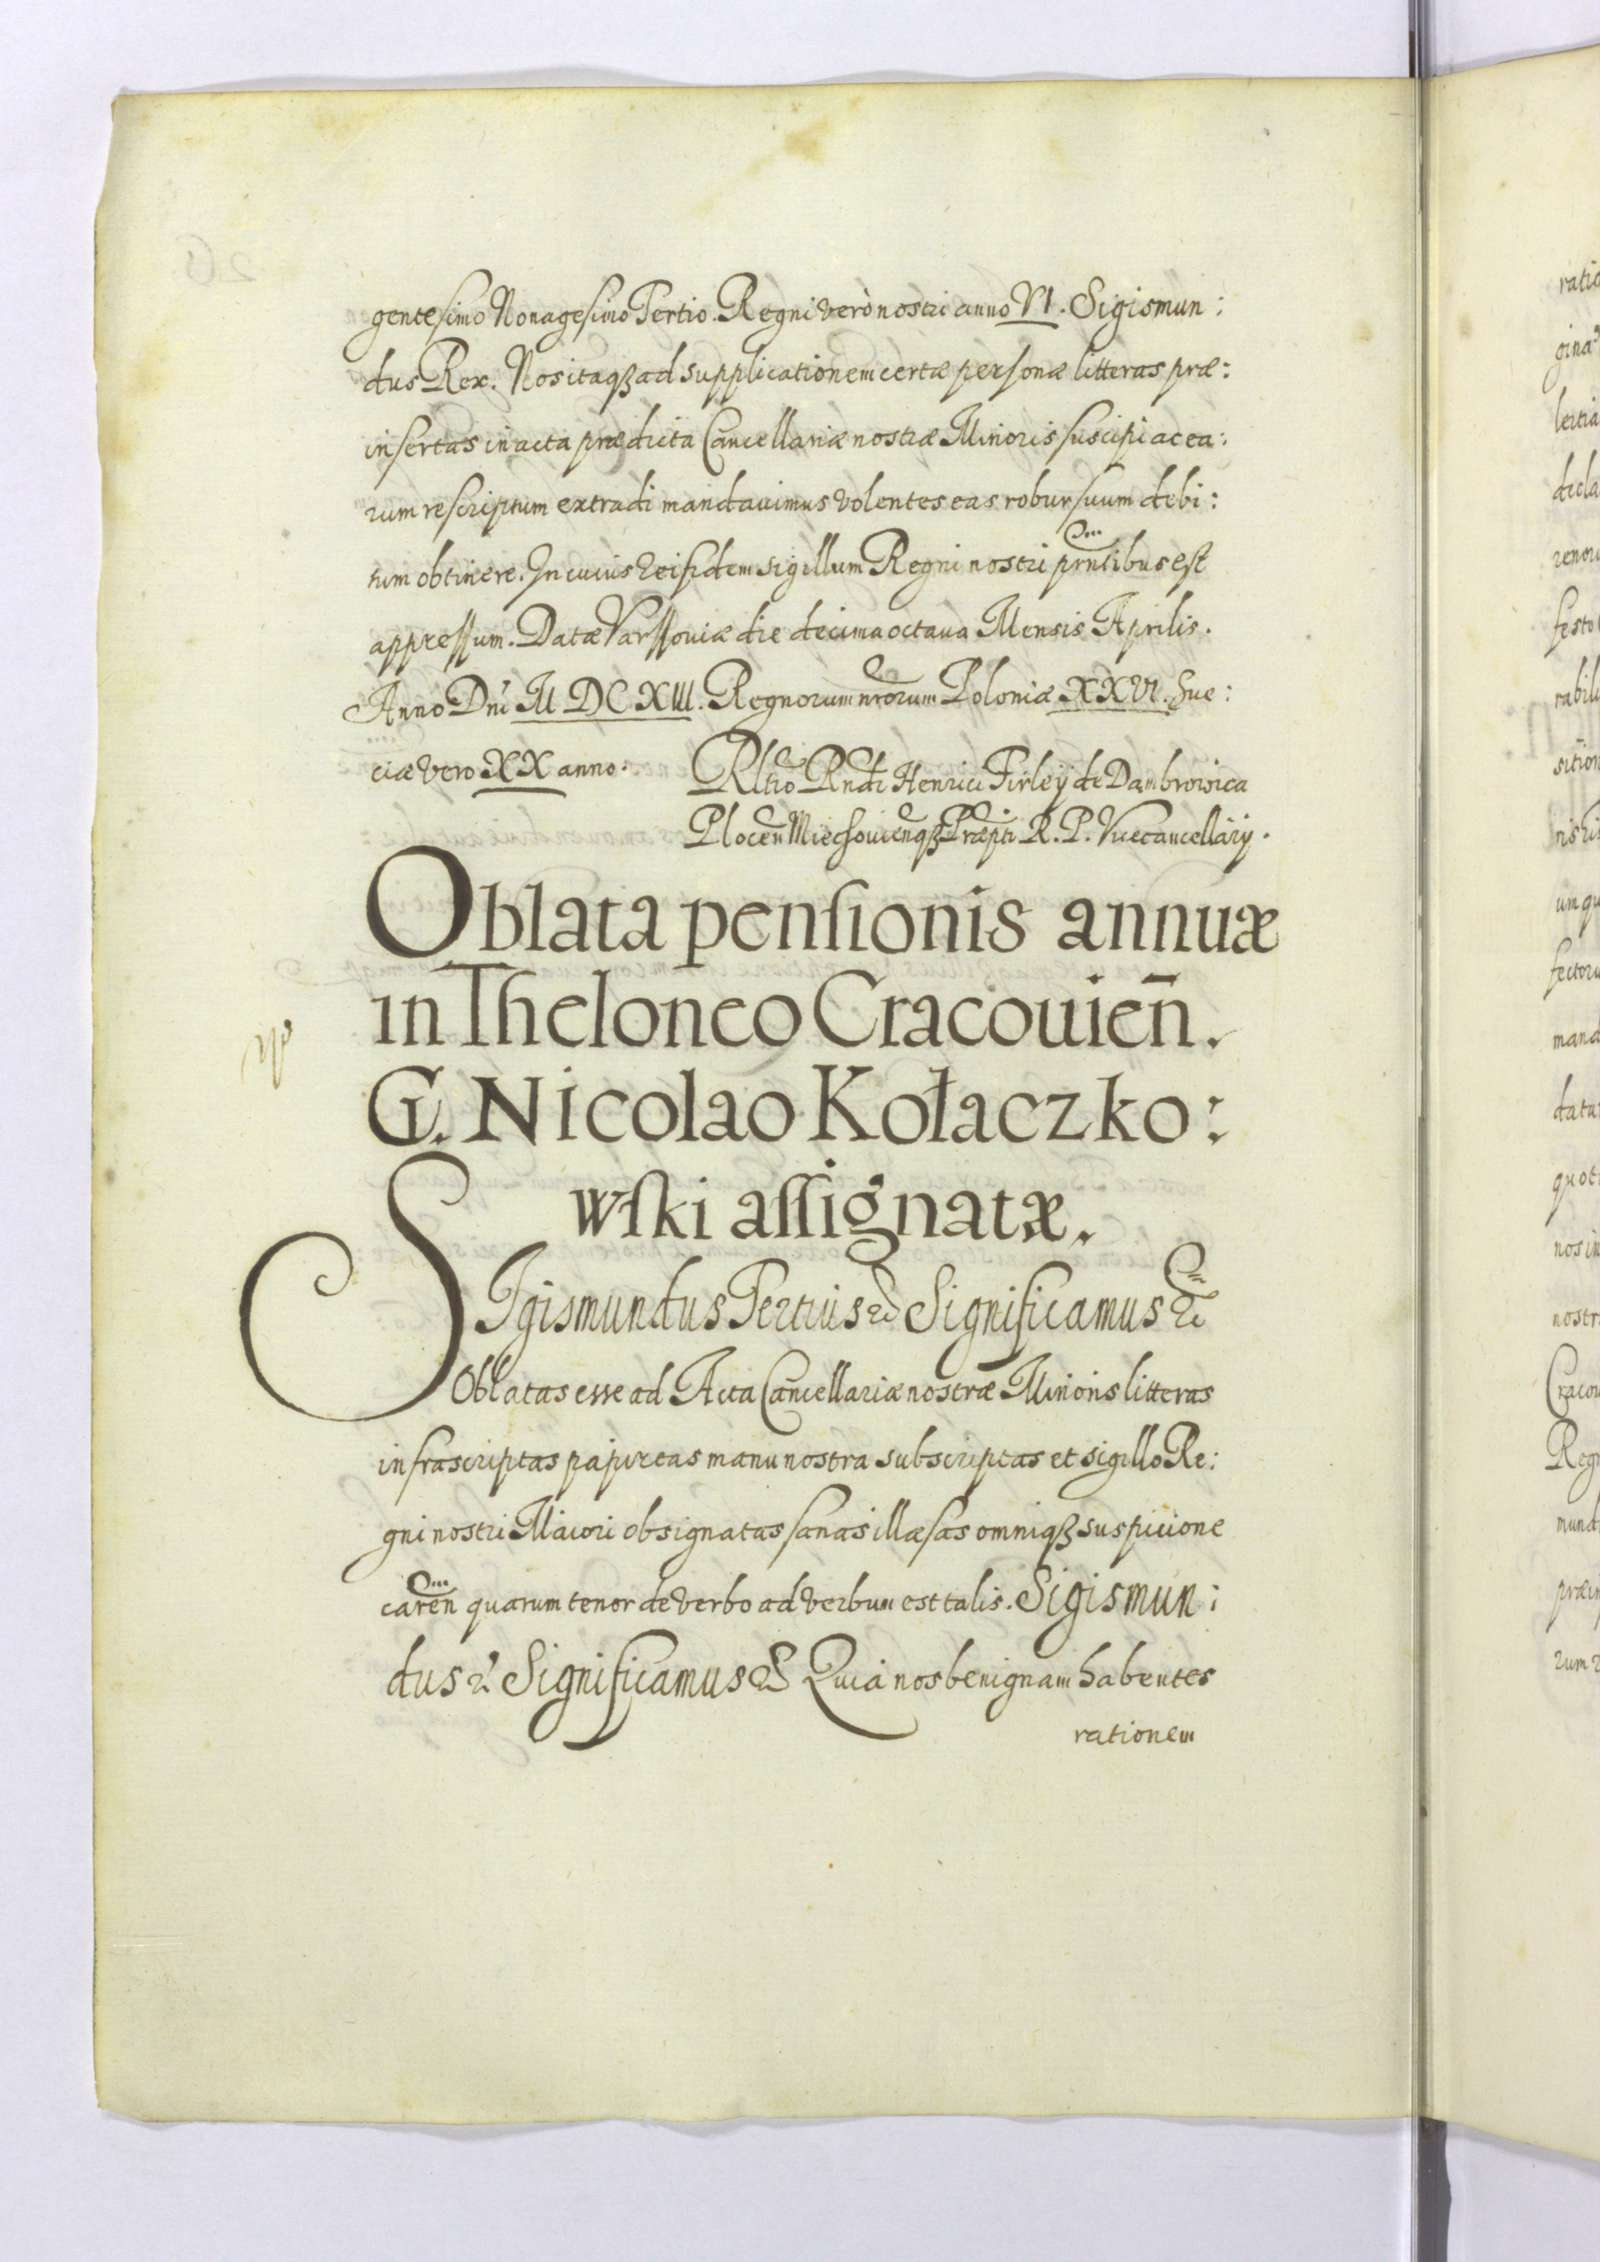 gentesimo Nonagesimo Tertio. Regni verò nostri anno VI. Sigismun:
dus Rex. Nos itaqꝫ ad supplicationem certæ personæ litteras præ:
insertas in acta prædicta Cancellariæ nostræ Minoris suscipi ac ea:
rum rescriptum extradi mandauimus volentes eas robur suum debi:
tum obtinere. In cuius rei fidem sigillum Regni nostri pñtibus est
appressum. Datæ Varssouiæ die decima octaua Mensis Aprilis.
Anno Dni M DC XIII. Regnorum nrorum Poloniæ XXVI. Sue:
ciæ vero XX anno.
Rltio Rndi Henrici Firleÿ de Dambrowica
Plocen Miechouienqꝫ Præpti R. P. Vicecancellarÿ.
Oblata pensionis annuæ
in Theloneo Cracouień.
G. Nicolao Kołaczko:
wski assignatæ.
SIgismundus Tertius &c Significamus &c
Oblatas esse ad Acta Cancellariæ nostræ Minoris litteras
infrascriptas papireas manu nostra subscriptas et sigillo Re:
gni nostri Maiori obsignatas sanas illæsas omniqꝫ suspicione
caren quarum tenor de verbo ad verbum est talis. Sigismun:
dus &c Significamus &c Quia nos benignam habentes
rationem